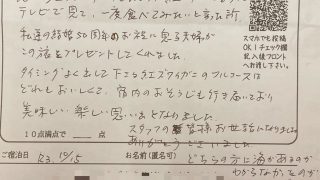 テレビで見て、一度食べてみたいと言った所
私達の結婚50周年のお祝に息子夫婦が
この宿をプレゼントしてくれました。
タイミングよくまして下エラエズワイガニのフルコースは
どれもおいしくて、館内のおそうじも行き届いており
美味しい楽しい思い出となりました
スタッフの皆様お世話になりました
ありがとうございました
10点満点で 点
ご宿泊日 R3. 10/15 お名前(匿名可) どちらの方に海があるのか
わからなかったのが
スマホでも投稿
OK!チェック欄
記入後フロント
へお渡し下さい。